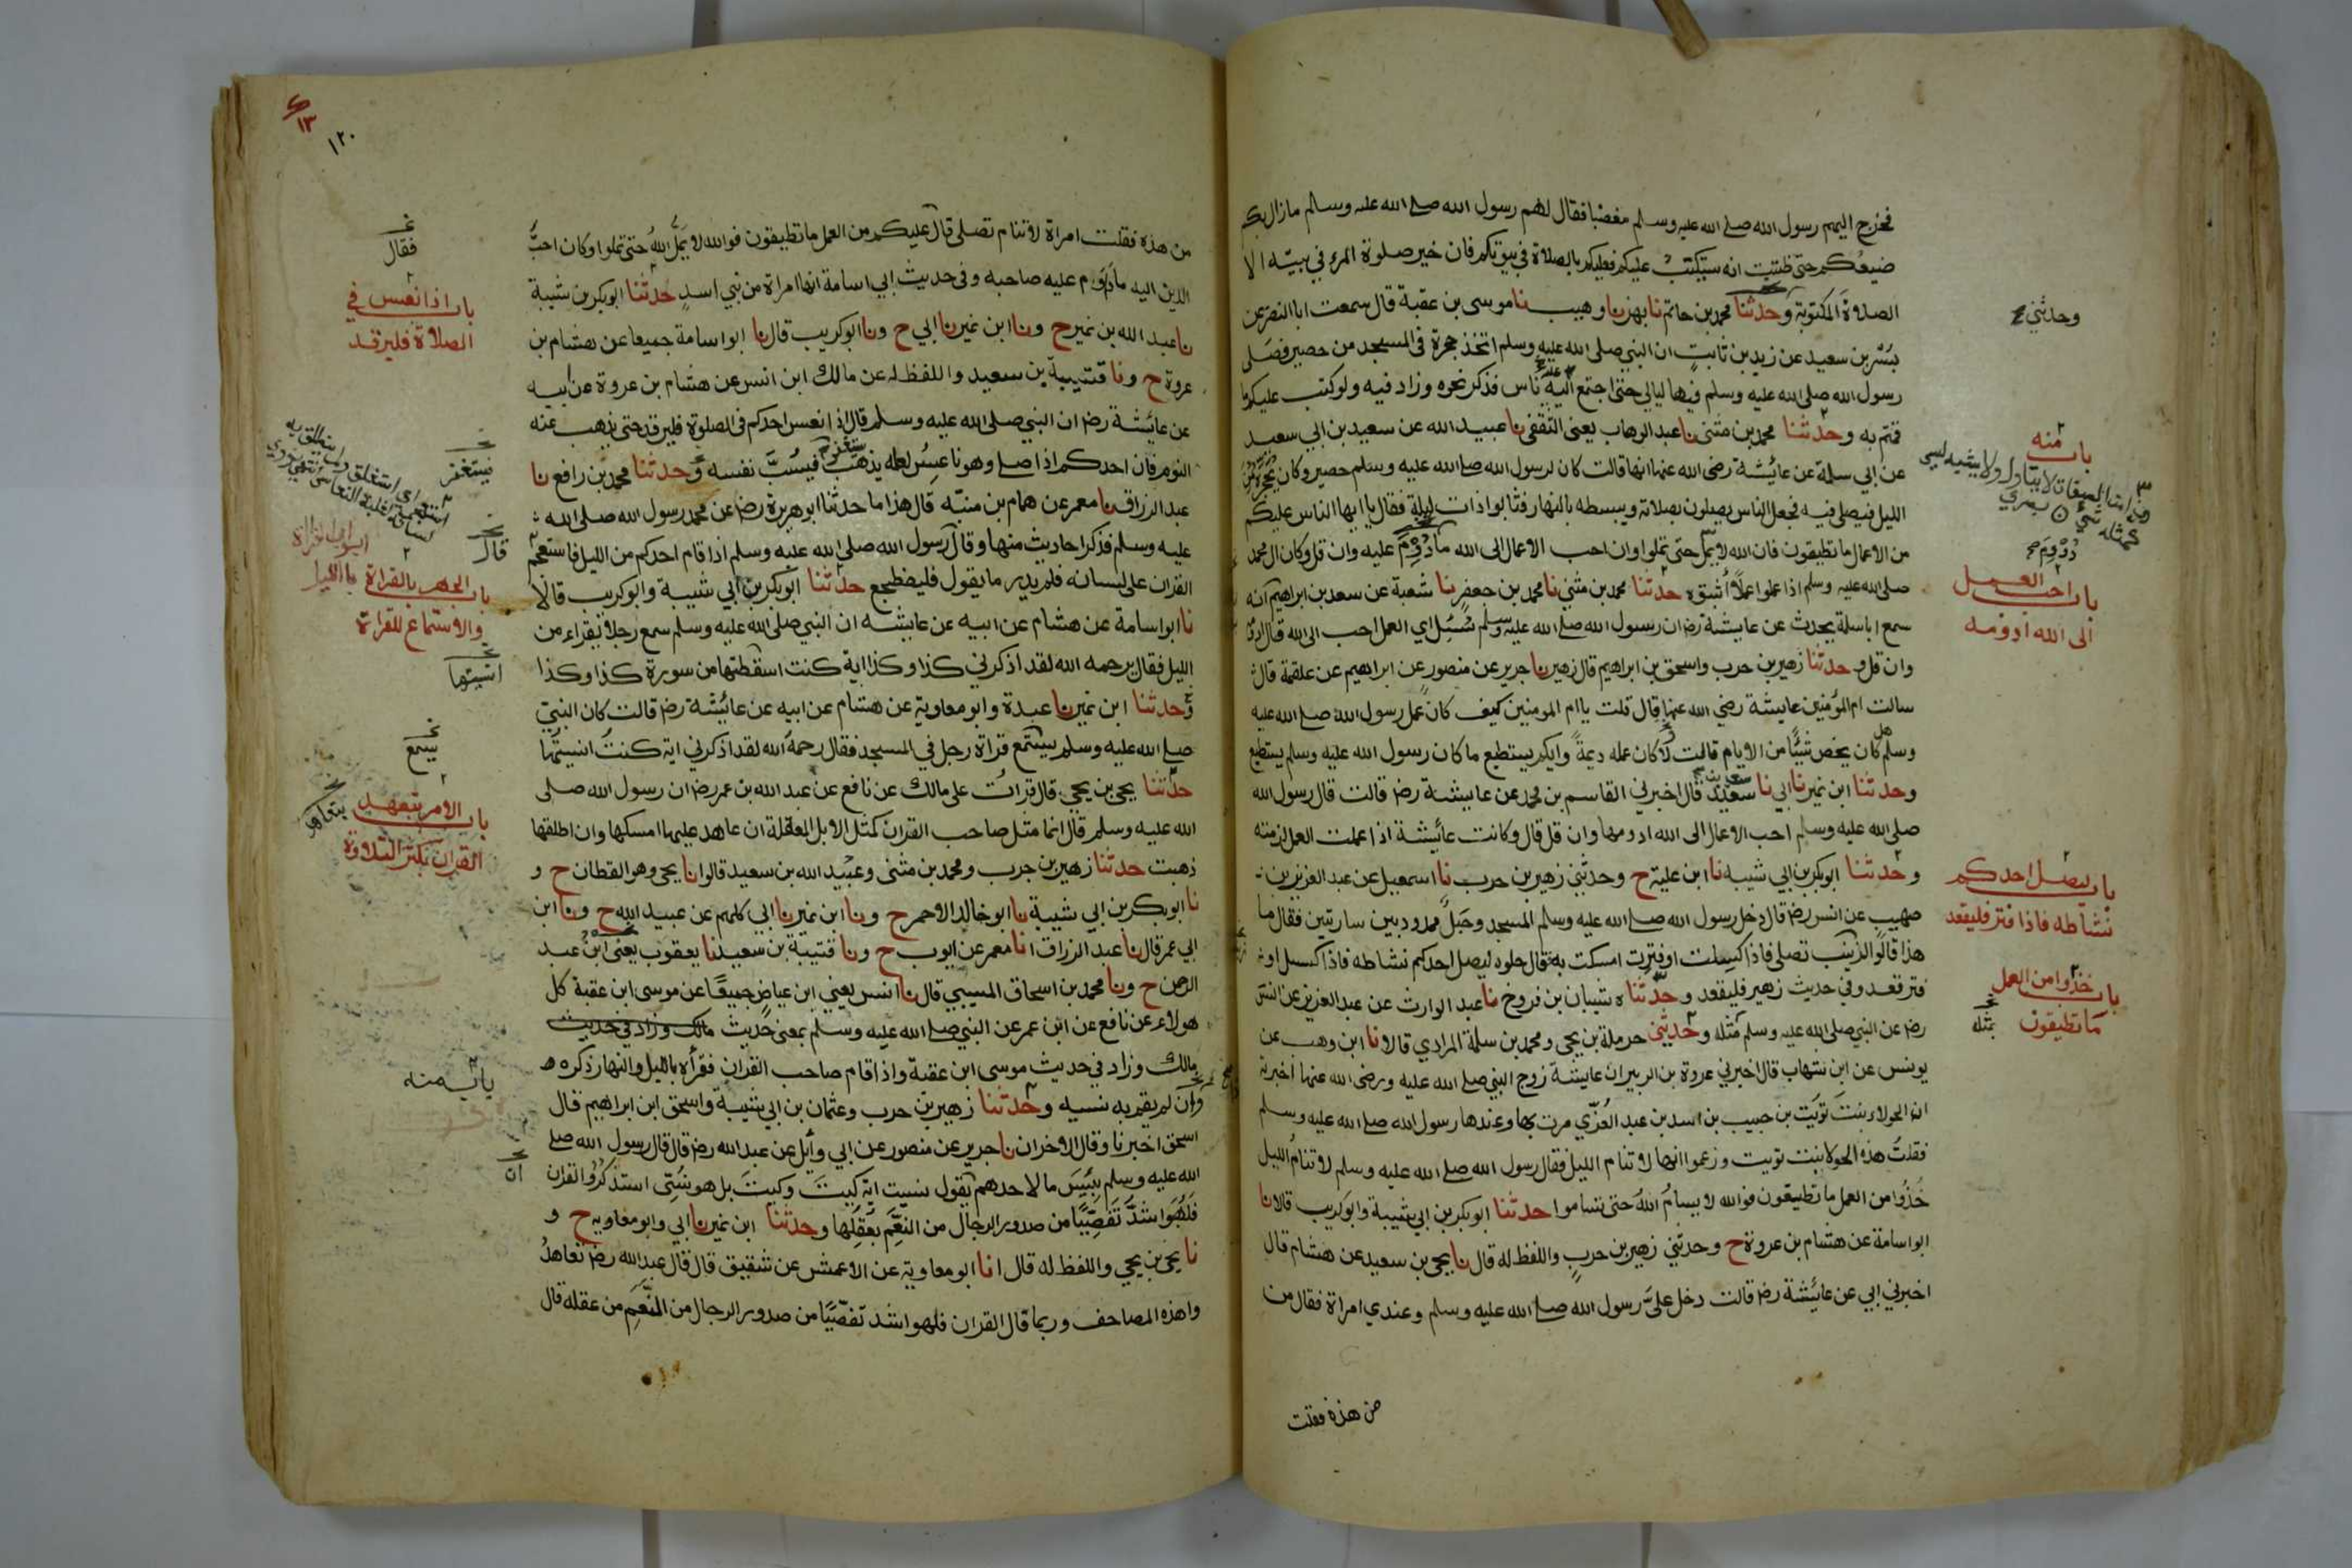 فخرج اليهم رسول الله صلى الله عليه وسلم مغضبا فقال لهم رسول الله صلى الله عليه وسلم ما زال بكم
صنيعكم حتى ظننت انه سيكتب عليكم فعليكم بالصلاة في بيوتكم فان خير صلوة المرء في بيته الا
الصلاة المكتوبة وحدثنا محمد بن حاتم نا بهز نا وهيب نا موسى بن عقبة قال سمعت ابا النضر عن
بسر بن سعيد عن زيد بن ثابت ان النبي صلى الله عليه وسلم اتخذ حجرة في المسجد من حصير فصلى
رسول الله صلى الله عليه وسلم فيها ليالي حتى اجتمع اليه ناس فذكر نحوه وزاد فيه ولو كتب عليكم ما
قمتم به وحدثنا محمد بن مثنى نا عبد الوهاب يعنى الثقفي نا عبيد الله عن سعيد بن ابي سعيد
عن ابي سلمة عن عائشة رضى الله عنها انها قالت كان لرسول الله صلى الله عليه وسلم حصير وكان يحجره من
الليل فيصلي فيه فجعل الناس يصلون بصلاته ويبسطه بالنهار فثابوا ذات ليلة فقال يا ايها الناس عليكم
من الاعمال ما تطيقون فان الله لا يمل حتى تملوا وان احب الاعمال الى الله ما دووم عليه وان قل وكان ال محمد
صلى الله عليه وسلم اذا عملوا عملا أثبتوه حدثنا محمد بن مثنى نا محمد بن جعفر نا شعبة عن سعد بن ابراهيم انه
سمع ابا سلمة يحدث عن عايشة رض ان رسول الله صلى الله عليه وسلم سئل اي العمل احب الى الله قال ادومه
وان قل وحدثنا زهير بن حرب واسحق بن ابراهيم قال زهير نا جرير عن منصور عن ابراهيم عن علقمة قال
سالت ام المؤمنين عايشة رضي الله عنها قال قلت يا ام المومنين كيف كان عمل رسول الله صلى الله عليه
وسلم هل كان يخص شيئا من الايام قالت لا كان عمله ديمة وايكم يستطيع ما كان رسول الله عليه وسلم يستطيع
وحدثنا ابن نمير نا ابي نا سعد بن سعيد قال اخبرني القاسم بن محمد عن عايشة رض قالت قال رسول الله
صلى الله عليه وسلم احب الاعمال الى الله ادومها وان قل قال وكانت عائشة اذا عملت العمل لزمته
وحدثنا ابوبكر بن ابي شيبه نا ابن علية ح وحدثني زهير بن حرب نا اسمعيل عن عبد العزيز بن
صهيب عن انس رض قال دخل رسول الله صلى الله عليه وسلم المسجد وحبل ممدود بين ساريتين فقال ما
هذا قالوا لزينب تصلي فاذا كسلت او فترت امسكت به فقال حلوه ليصل احدكم نشاطه فاذا كسل او
فتر قعد وفي حديث زهير فليقعد وحدثناه شيبان بن فروخ نا عبد الوارث عن عبد العزيز عن انس
رض عن النبي صلى الله عليه وسلم مثله وحدثني حرملة بن يحيى ومحمد بن سلمة المرادي قالا نا ابن وهب عن
يونس عن ابن شهاب قال اخبرني عروة بن الزبير ان عايشة زوج النبي صلى الله عليه ورضى الله عنها اخبرته
ان الحولاء بنت تويت بن حبيب بن اسد بن عبد العزي مرت بها وعندها رسول الله صلى الله عليه وسلم
فقلت هذه الحولا بنت تويت وزعموا انها لا تنام الليل فقال رسول الله صلى الله عليه وسلم لا تنام الليل
خذوا من العمل ما تطيقون فوالله لا يسام الله حتى تساموا حدثنا ابوبكر بن ابي شيبة وابو كريب قالا نا
ابو اسامة عن هشام بن عروة ح وحدثني زهير بن حرب واللفظ له قال نا يحيى بن سعيد عن هشام قال
اخبرني ابي عن عائشة رض قالت دخل علي رسول الله صلى الله عليه وسلم وعندي امراة فقال من
من هذه فقلت
وحدثني
باب منه
دووم
باب احب العمل
الى الله ادومه
باب ليصل احدكم
نشاطه فاذا فتر فليقعد
باب خذوا من العمل
ما تطيقون
بمثله
١٢٠
١٣
من هذه فقلت امراة لا تنام تصلي قال عليكم من العمل ما تطيقون فوالله لا يمل الله حتى تملوا وكان احب
الدين اليه ما داوم عليه صاحبه وفى حديث ابي اسامة انها امراة من بني اسد حدثنا ابوبكر بن شيبة
نا عبد الله بن نمير ح ونا ابن نمير نا ابي ح ونا ابو كريب قال نا ابو اسامة جميعا عن هشام بن
عروة ح ونا قتيبة بن سعيد واللفظ له عن مالك ابن انس عن هشام بن عروة عن ابيه
عن عايشة رض ان النبي صلى الله عليه وسلم قال اذا نعس احدكم في الصلوة فليرقد حتى يذهب عنه
النوم فان احدكم اذا صلى وهو ناعس لعله يذهب يستغفر فيسب نفسه وحدثنا محمد بن رافع نا
عبد الرزاق نا معمر عن همام بن منبه قال هذا ما حدثنا ابو هريرة رض عن محمد رسول الله صلى الله
عليه وسلم فذكر احاديث منها وقال رسول الله صلى الله عليه وسلم اذا قام احدكم من الليل فاستعجم
القران على لسانه فلم يدر ما يقول فليضطجع حدثنا ابوبكر بن ابي شيبة وابو كريب قالا
نا ابو اسامة عن هشام عن ابيه عن عايشه ان النبي صلى الله عليه وسلم سمع رجلا يقراء من
الليل فقال يرحمه الله لقد اذكرني كذا وكذا اية كنت اسقطتها من سورة كذا وكذا
وحدثنا ابن نمير نا عبدة وابو معاوية عن هشام عن ابيه عن عائشة رض قالت كان النبي
صلى الله عليه وسلم يستمع قراة رجل في المسجد فقال رحمه الله لقد اذكرني اية كنت انسيتها
حدثنا يحيى بن يحيى قال قرات على مالك عن نافع عن عبد الله بن عمر رض ان رسول الله صلى
الله عليه وسلم قال انما مثل صاحب القران كمثل الابل المعقلة ان عاهد عليها امسكها وان اطلقها
ذهبت حدثنا زهير بن حرب ومحمد بن مثنى وعبيد الله بن سعيد قالوا نا يحيى وهو القطان ح و
نا ابوبكر بن ابي شيبة نا ابو خالد الاحمر ح ونا ابن نمير نا ابي كلهم عن عبيد الله ح ونا ابن
ابي عمر قال نا عبد الرزاق انا معمر عن ايوب ح ونا قتيبة بن سعيد نا يعقوب يعنى ابن عبد
الرحمن ح ونا محمد بن اسحاق المسيبي قال نا انس يعني ابن عياض جميعا عن موسى ابن عقبة كل
هولاء عن نافع عن ابن عمر عن النبي صلى الله عليه وسلم بمعنى حديث مالك وزاد في حديث
مالك وزاد في حديث موسى ابن عقبة واذا قام صاحب القران فقرأه بالليل والنهار ذكره
وان لم يقم به نسيه وحدثنا زهير بن حرب وعثمان بن ابي شيبة واسحق ابن ابراهيم قال
اسحق اخبرنا وقال الاخران نا جرير عن منصور عن ابي وائل عن عبد الله رض قال قال رسول الله صلى
الله عليه وسلم بئس ما لاحدهم يقول نسيت اية كيت وكيت بل هو نسي استذكروا القران
فلهو اشد تفصيا من صدور الرجال من النعم بعقلها وحدثنا ابن نمير نا ابي وابو معاويه ح و
نا يحيى بن يحيى واللفظ له قال انا ابو معاوية عن الاعمش عن شقيق قال قال عبد الله رض تعاهدوا
هذه المصاحف وربما قال القران فلهو اشد تفصيا من صدور الرجال من النعم من عقله قال
فقال
باب اذا نعس في
الصلاة فليرقد
فيستغفر
قال
باب الجهر بالقراة بالليل
والاستماع للقراة
انسيتها
يسمع
باب الامر بتعهد
القران بكثر التلاوة
باب منه
ان